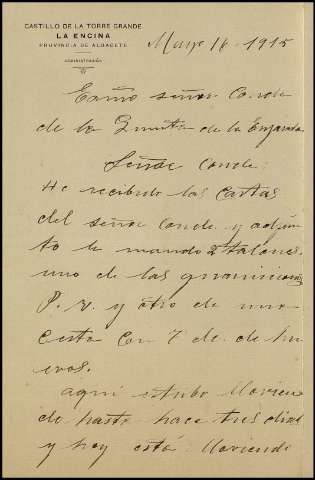 CASTILLO DE LA TORRE GRANDE
LA ENCINA
PROVINCIA DE ALBACETE
ADMINISTRACIÓN
Mayo 16-1915
Exmo señor Conde
de la Quinta de la Enjarada
Señor Conde:
He recibido las Cartas
del señor Conde y adjun
to le mando 2 talones.
uno de las guarniciones
P. V. y otro de una
Cesta Con 7 de. de hu
evos.
aqui estubo llovien
do hasta hace tres dias
y hoy está lloviendo